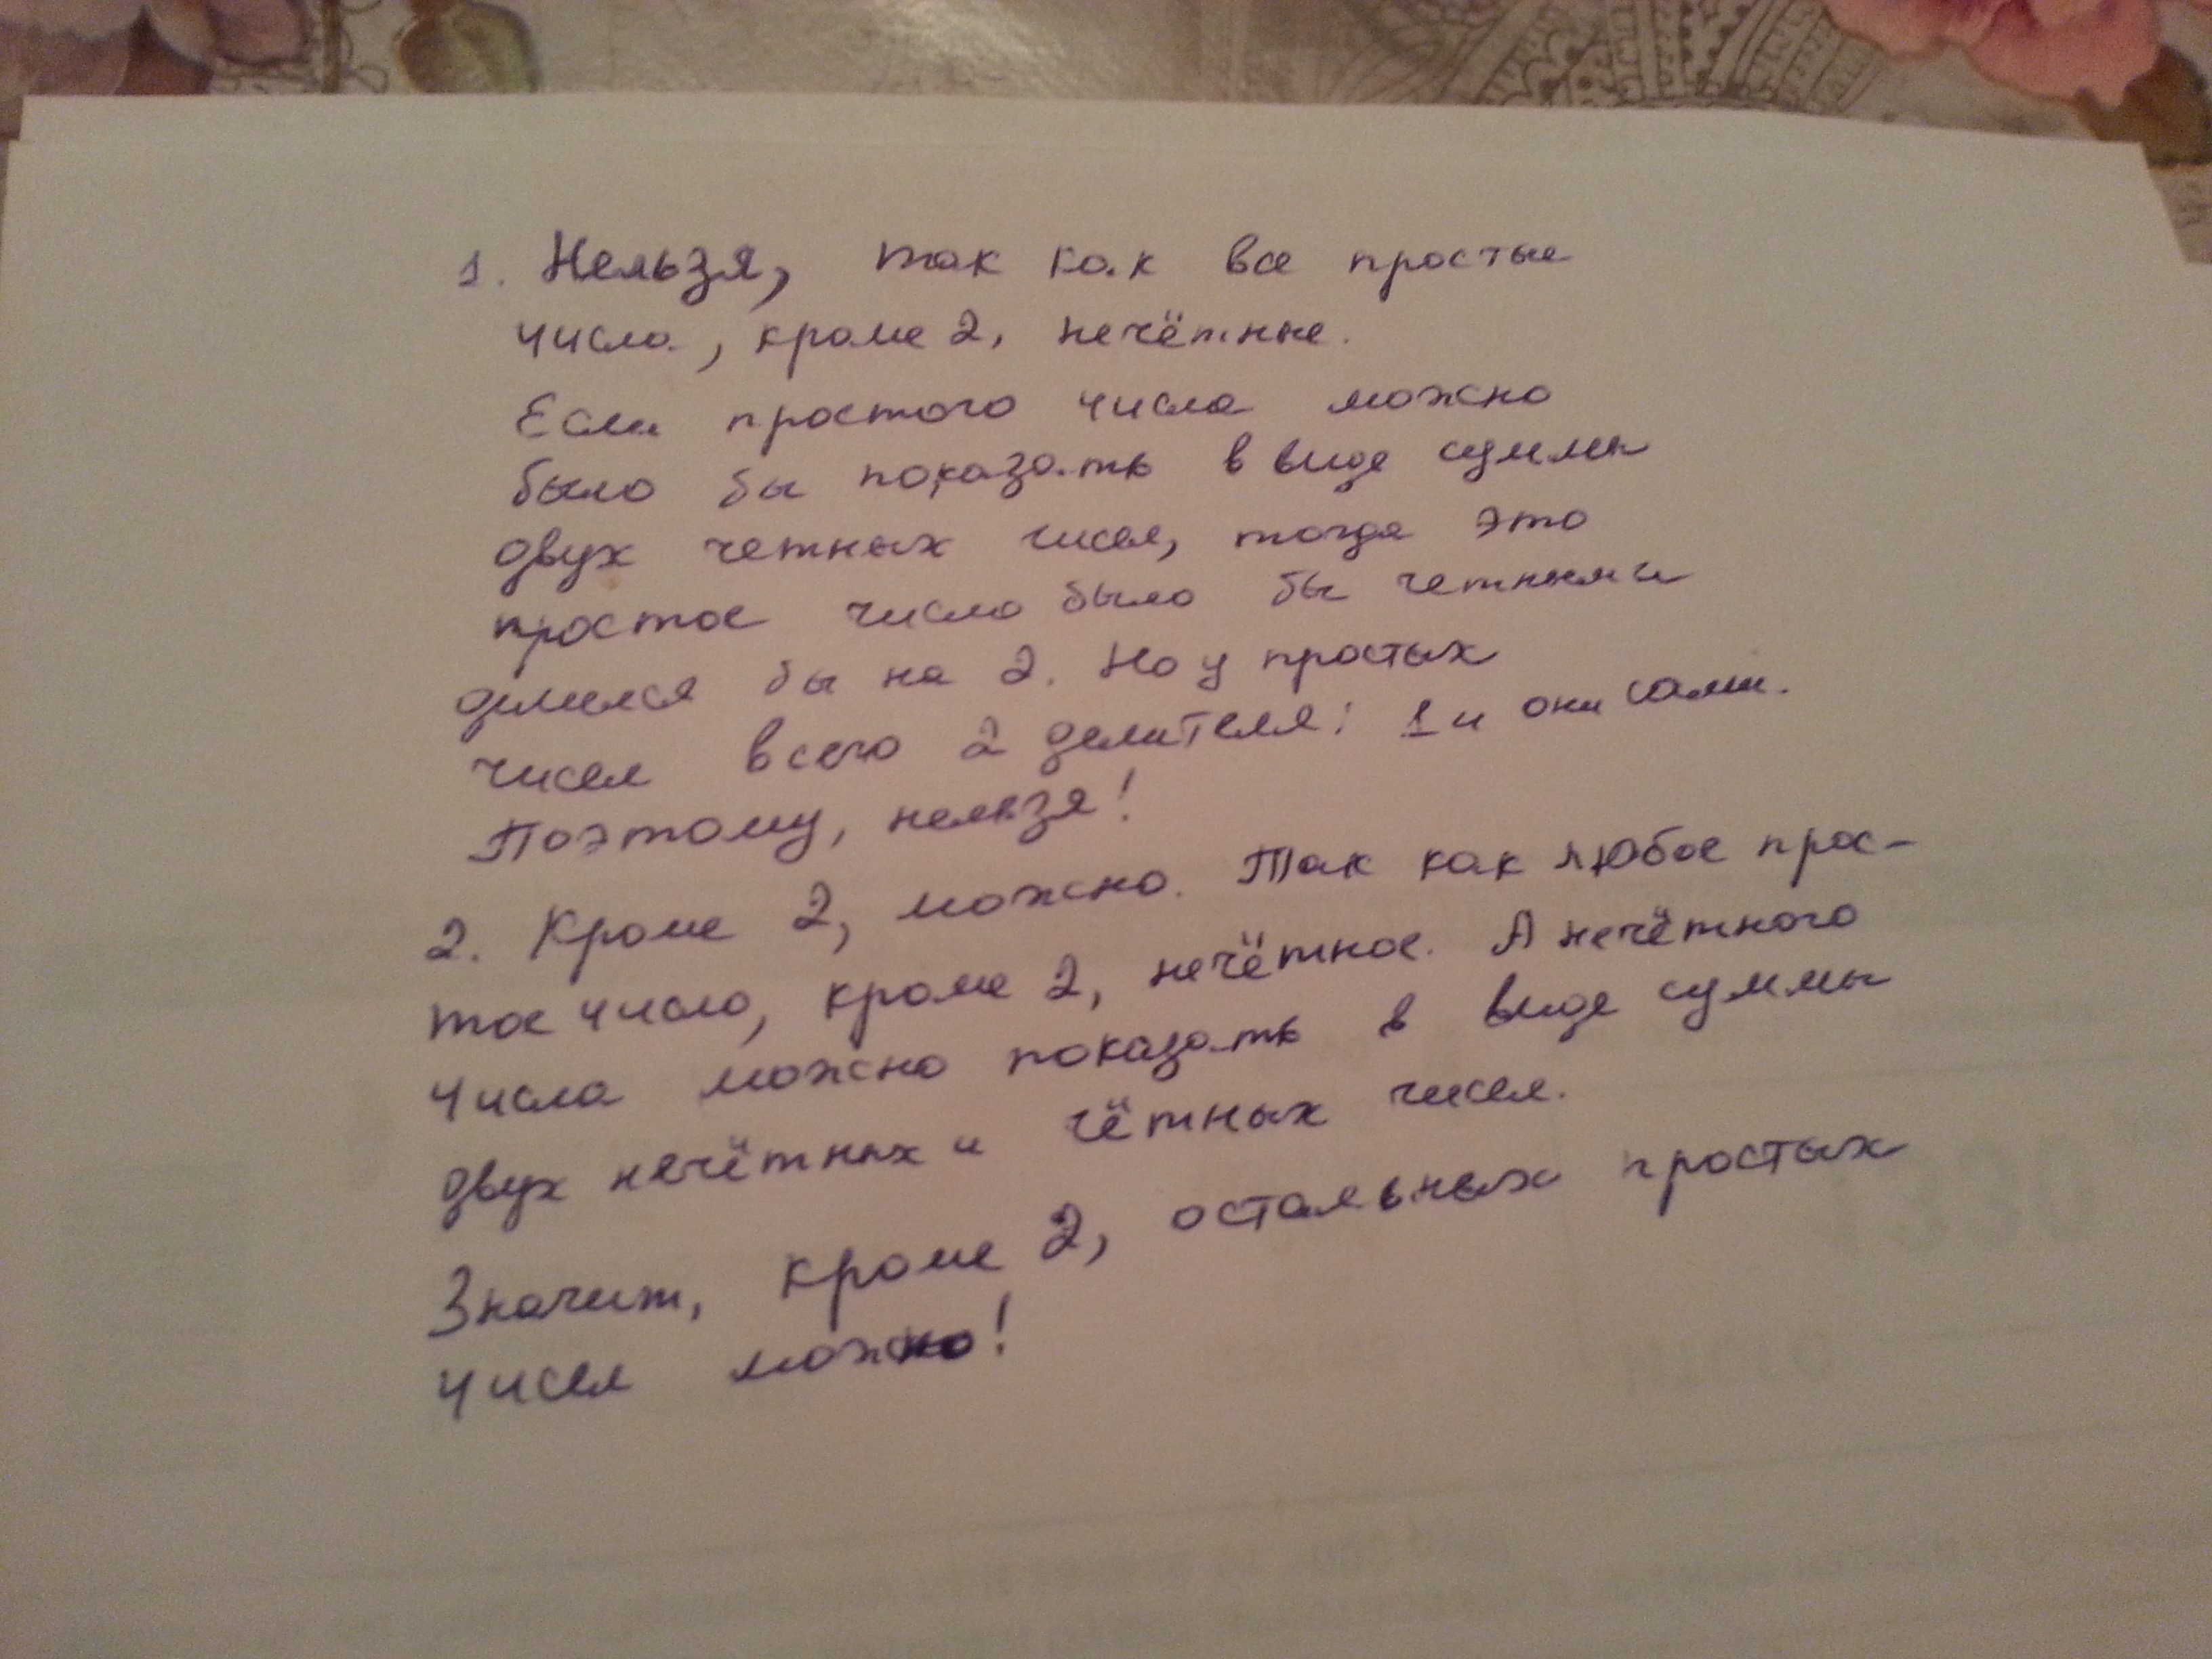 1. Нельзя, так как все простые
числа, кроме 2, нечётные.
Если простого числа можно
было бы показать в виде суммы
двух четных чисел, тогда это
простое число было бы четным и
делился бы на 2. Но у простых
чисел всего 2 делителя: 1 и они сами.
Поэтому, нельзя!
2. Кроме 2, можно. Так как любое прос-
тое число, кроме 2, нечётное. А нечётного
числа можно показать в виде суммы
двух нечётных и чётных чисел.
Значит, кроме 2, остальных простых
чисел можно!